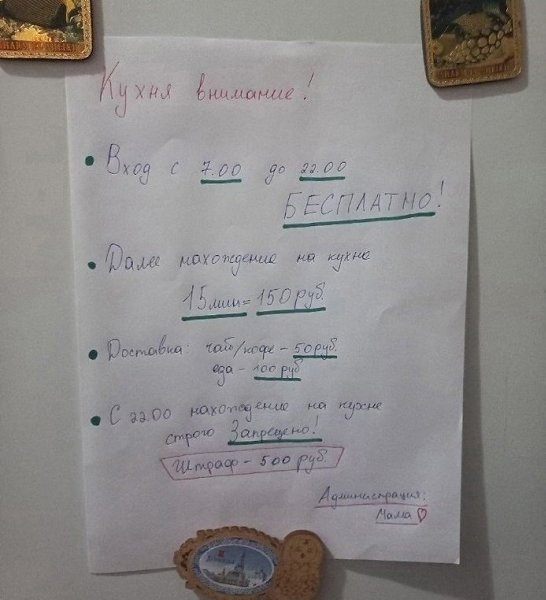 Кухня внимание!
• Вход с 7.00 до 22.00
БЕСПЛАТНО!
• Далее нахождение на кухне
15мин = 150 руб.
• Доставка: чай/кофе – 50 руб.
еда – 100 руб
• С 22.00 нахождение на кухне
строго Запрещено!
Штраф – 500 руб.
Администрация:
Мама♡